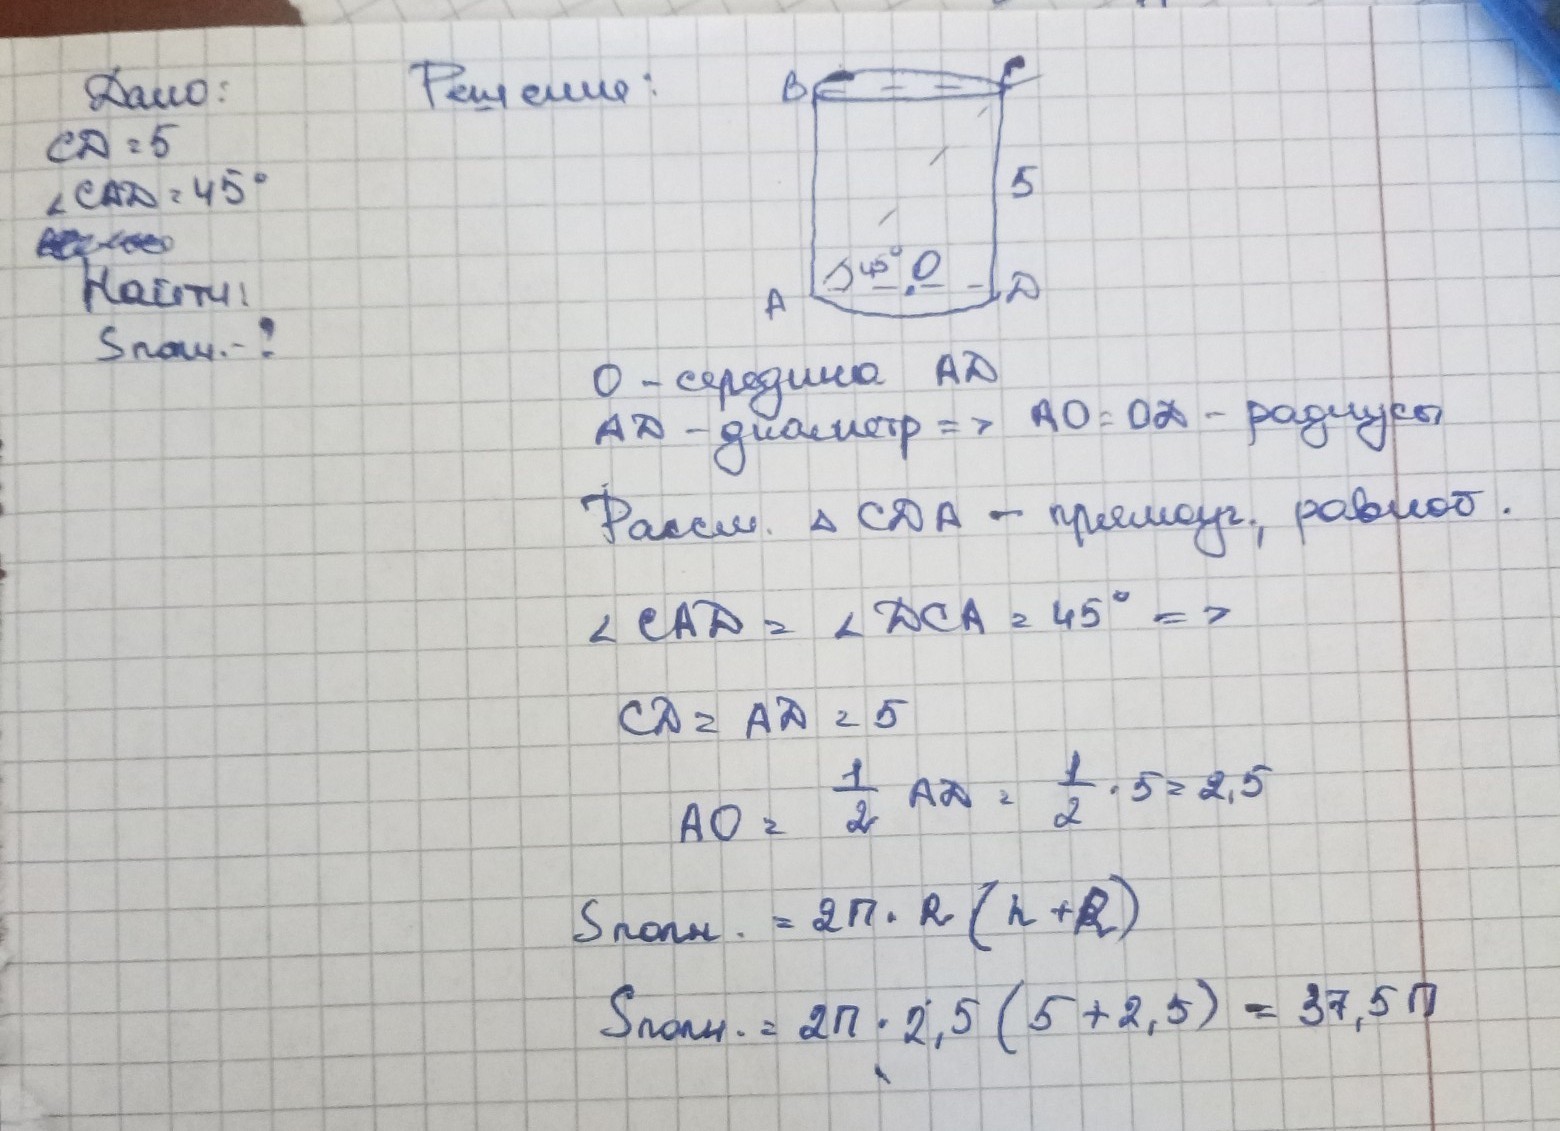 Дано:
CD = 5
∠CAD = 45°
Найти:
Sполн. - ?
Решение:
B C
5
45° O
A D
O – середина AD
AD – диаметр => AO = OD – радиусы
Рассм. △ CDA – прямоуг., равноб.
∠CAD = ∠DCA = 45° =>
CD = AD = 5
AO = 1/2 AD = 1/2 · 5 = 2,5
Sполн. = 2П · R (h + R)
Sполн. = 2П · 2,5 (5 + 2,5) = 37,5П